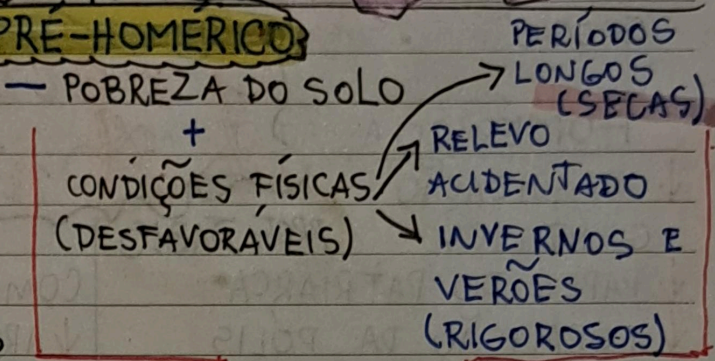 PRÉ-HOMÉRICO
— POBREZA DO SOLO
+
CONDIÇÕES FÍSICAS
(DESFAVORÁVEIS)
PERÍODOS
LONGOS
(SECAS)
RELEVO
ACIDENTADO
INVERNOS E
VERÕES
(RIGOROSOS)